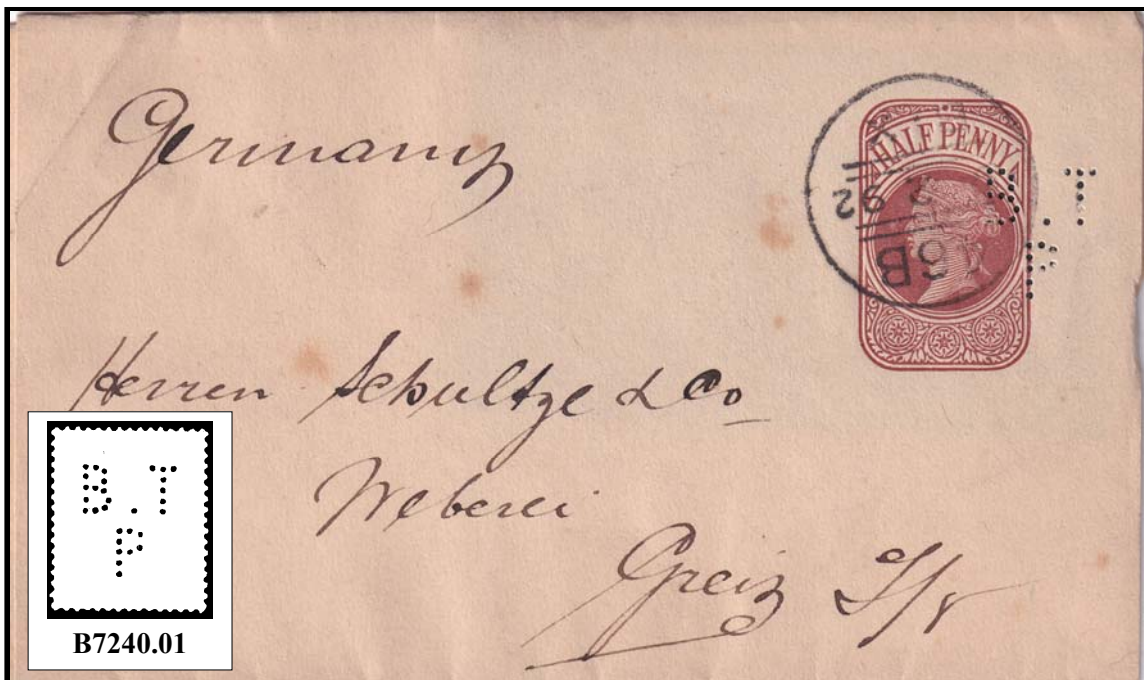 Germany
HALF PENNY
B.T
P
6B
2
92
Herren Schultze & Co
Weberei
Greiz
B.T
P
B7240.01